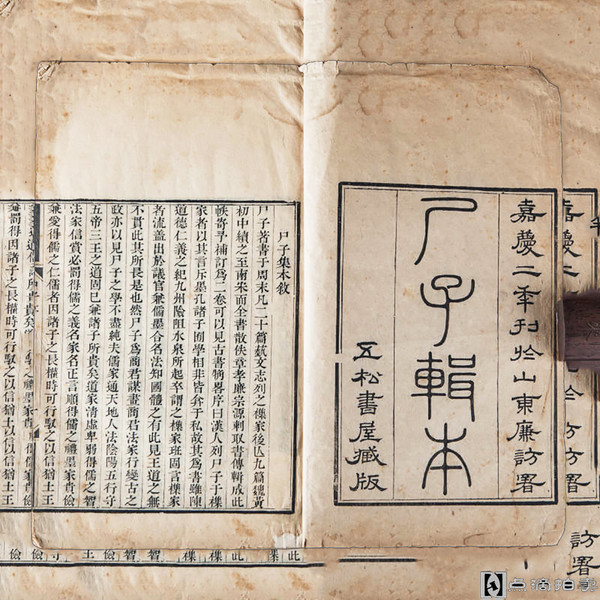 嘉慶二年刊於山東廉訪署
尸子輯本
五松書屋藏版
尸子集本敘
尸子著書于周末凡二十篇藝文志列之襍家後亾九篇魏黃
初中續之至南宋而全書散佚章孝廉宗源刺取書傳輯成此
帙寄予補訂為二卷可以見古書梗畧序曰漢人列尸子于襍
家者以其言斥墨孔諸子囿學相非皆弇于私故其為書雖陳
道德仁義之紀九州險阻水泉所起卒謂之襍家班固言襍家
者流蓋出於議官兼儒墨合名法知國體之有此見王道之無
不貫此其所長是也然尸子為商君謀畫商君法家行變古之
政亦以見尸子之學不盡純夫儒家通天地人法陰陽五行守
五帝三王之道固已兼諸子所貴矣道家清虛卑弱得儒之智
法家信賞必罰得儒之義名家名正言順得儒之禮墨家貴儉
兼愛得儒之仁儒者因諸子之長權時可行馭之以信猶土王